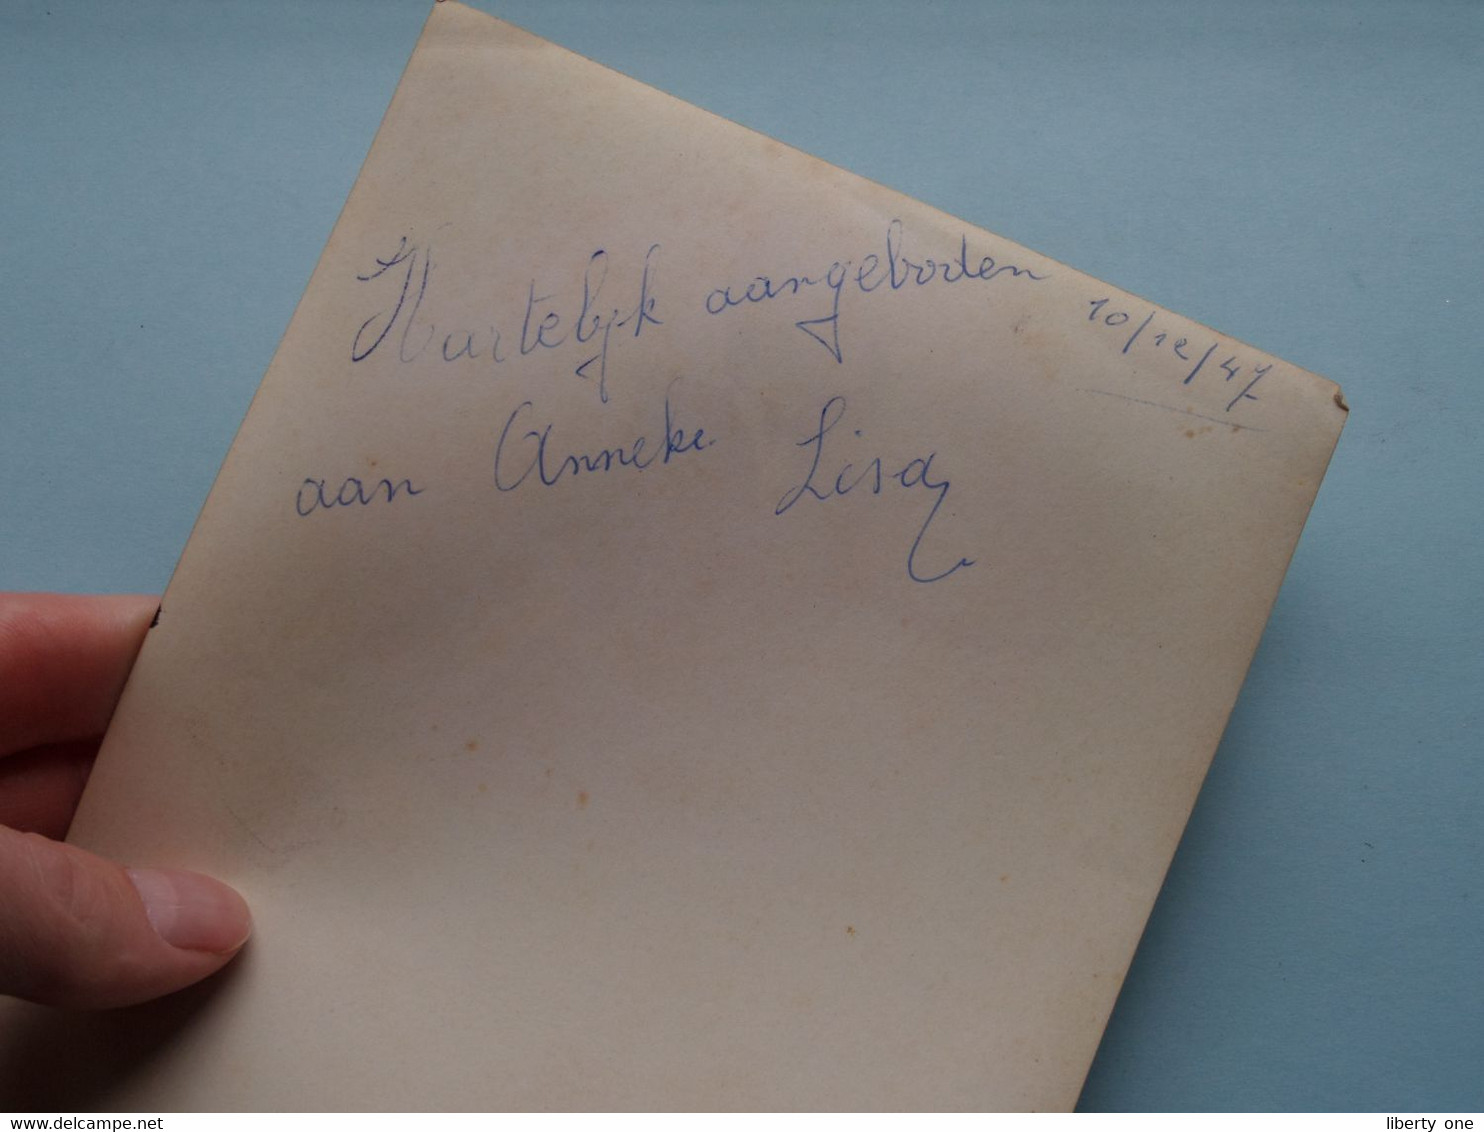 Hartelijk aangeboden
10/12/47
aan Anneke Lisa
delcampe.net
liberty one